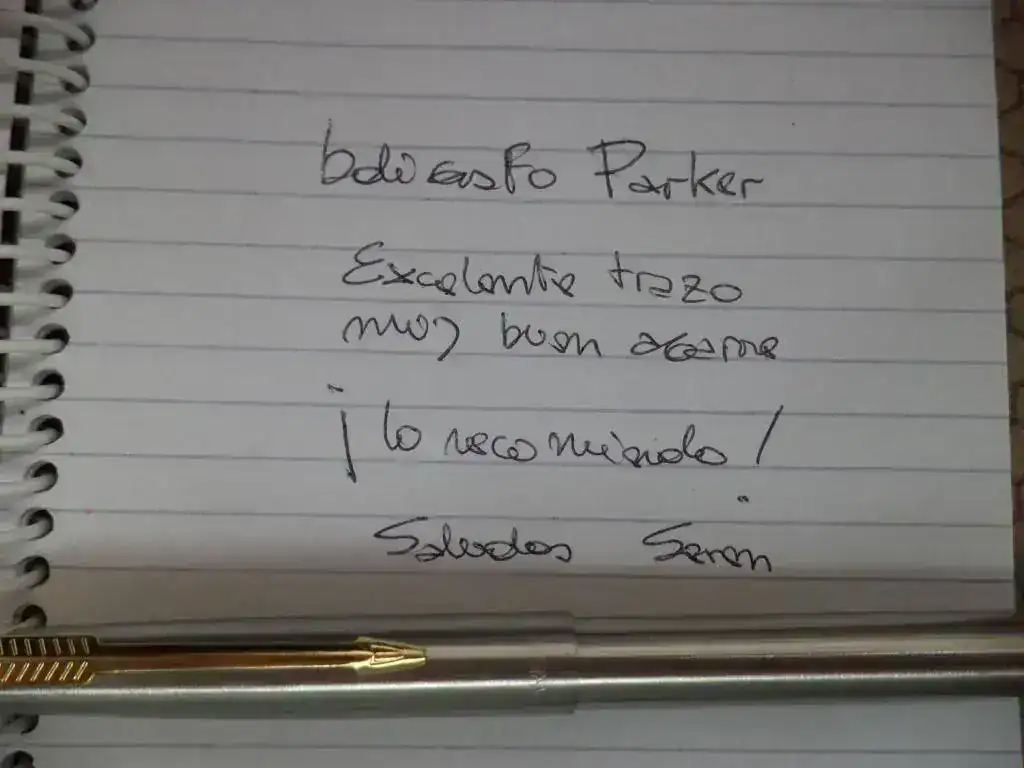 boligrafo Parker
Excelente trazo
muy buen
¡lo recomiendo!
Saludos